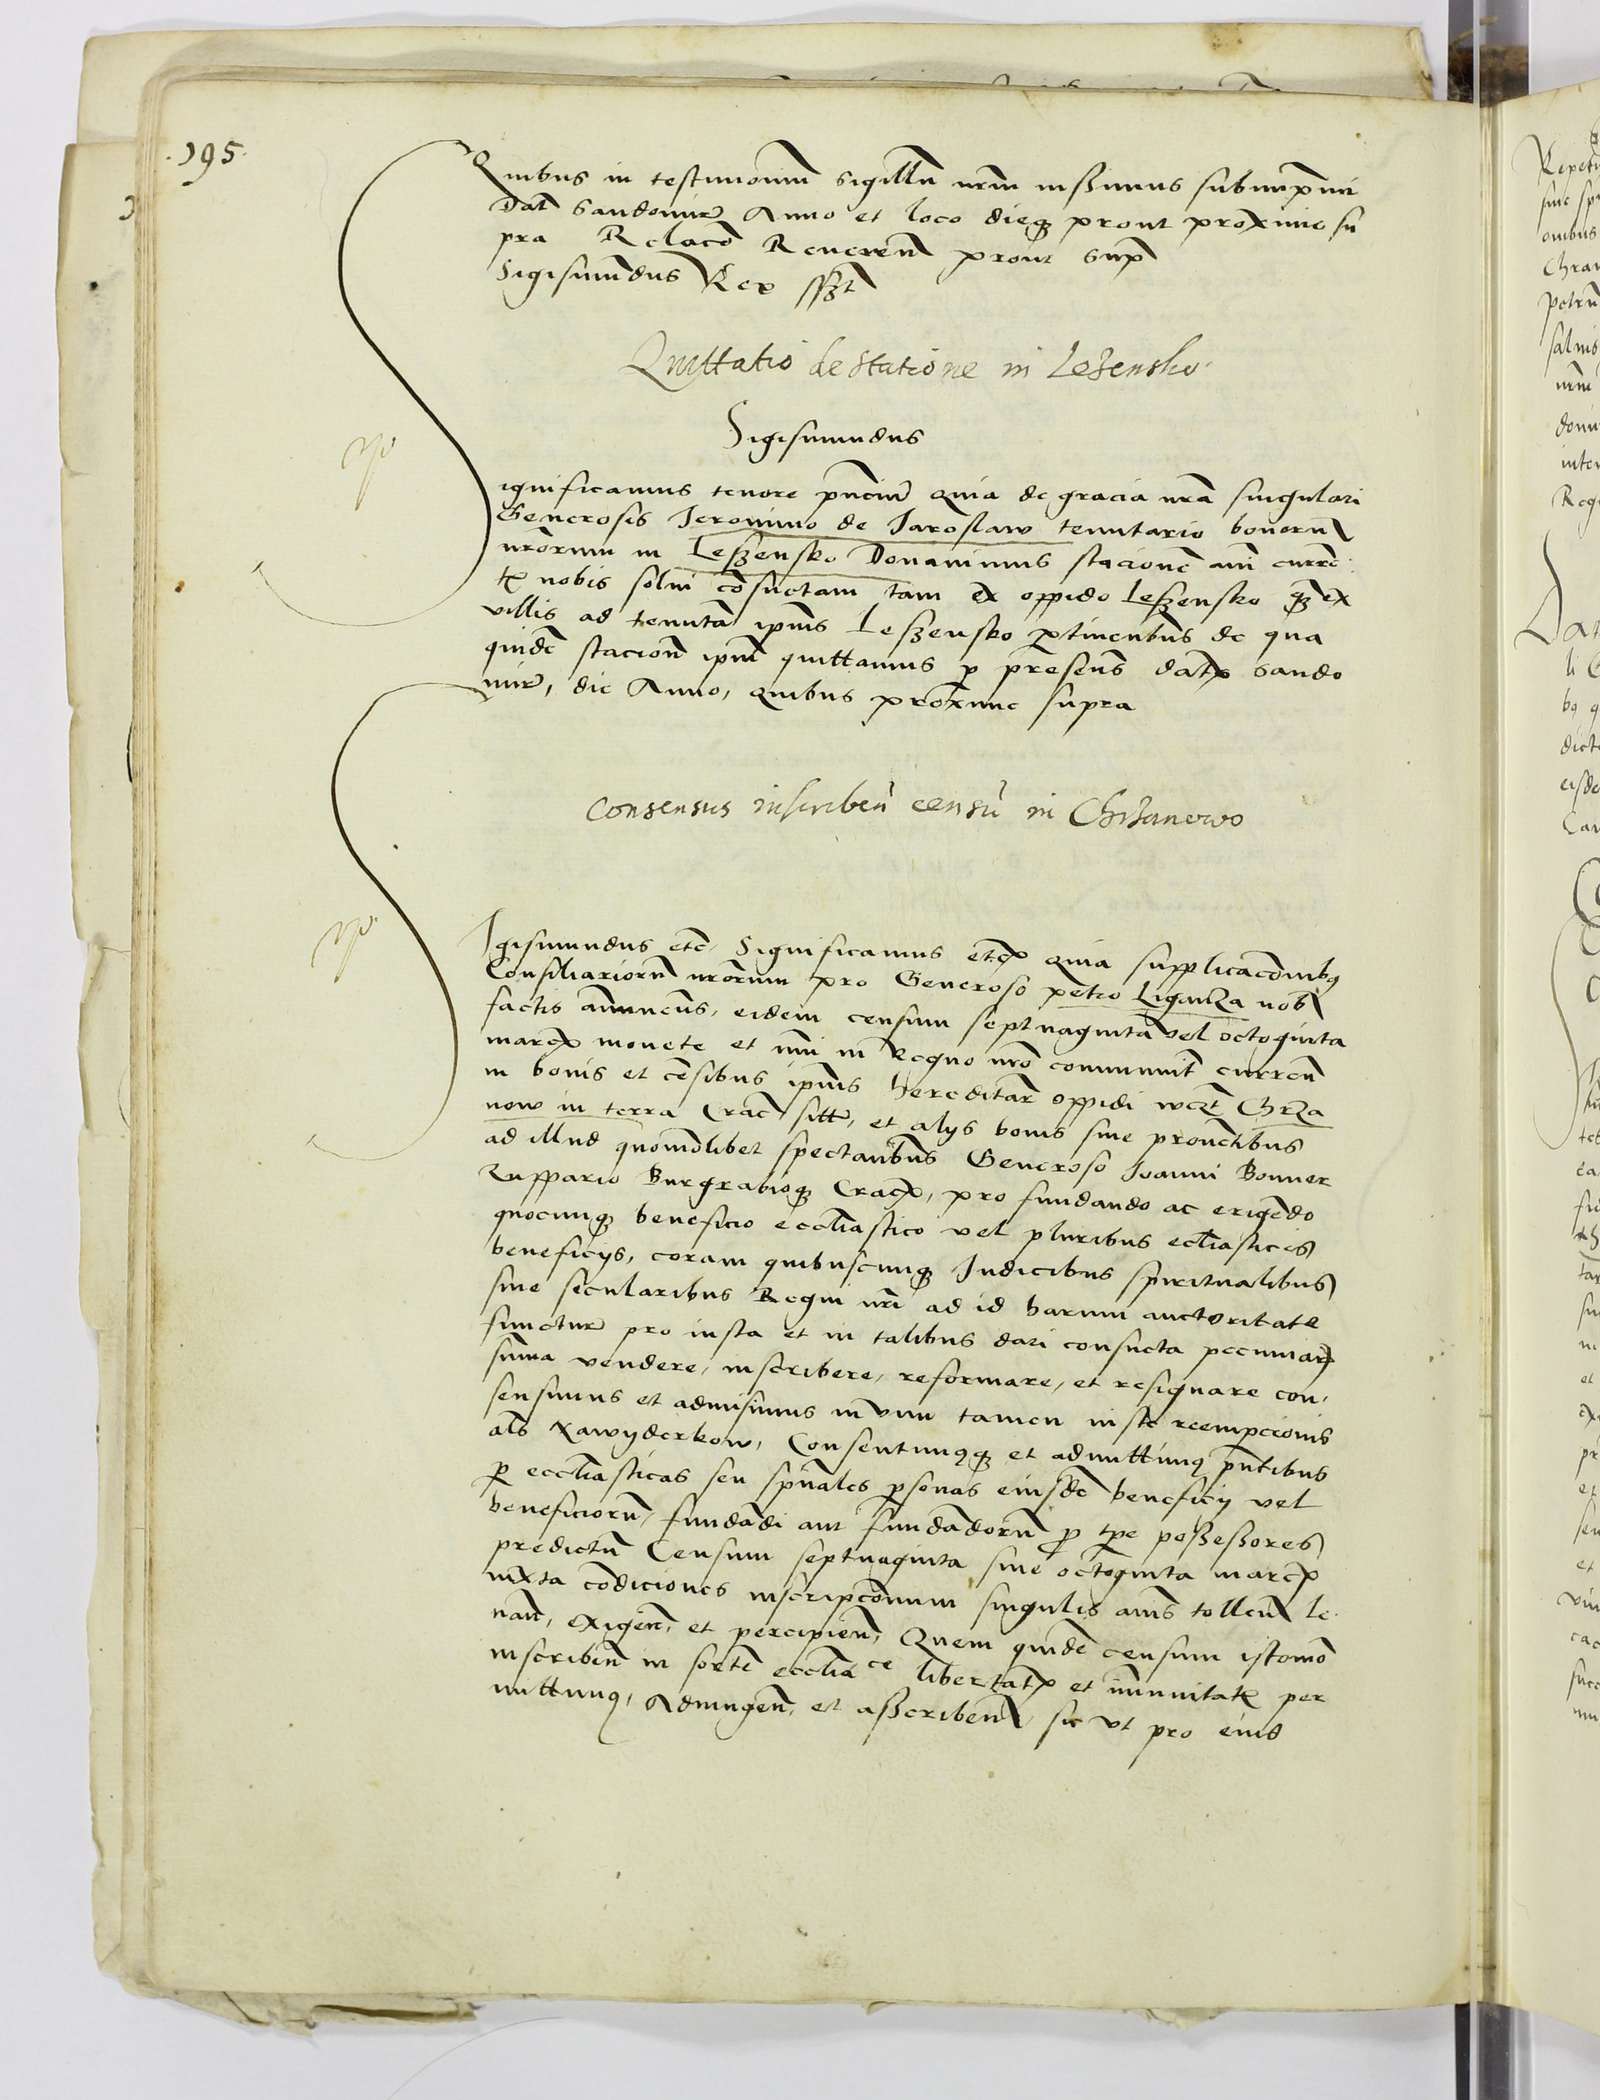 .195.
Quibus in testimonium Sigillu nrm iussimus subimpmi
Dat Sandomir Anno et loco dieq prout proxime su
pra Relaco Reveren prout Sup
Sigismundus Rex sszt
Quittatio de statione in Lezensko.
Sigismundus
ignificamus tenore pnciu quia de gracia nra singulari
Generosis Ieronimo de Iaroslaw tenutario bonoru
nrorum in Leszensko Donavimus stacione ani curre
t nobis solvi cosuetam tam ex oppido Leszensko q ex
villis ad tenuta ipius Leszensko ptinentibus de qua
quide stacion ipm quittamus p presens dat Sando
mir, die Anno, quibus proxime supra
Consensus inscriben censu in Chrzanowo
Igismundus etc, Significamus etc quia supplicaconibq
Consiliarioru nrorum pro Generoso petro Liganza nob
factis annuens, eidem censum septuaginta vel octoginta
marc monete et nui in Regno nro communit curren
in bonis et cesibus ipius hereditar oppidi wczt Chrza
now in terra Crac sitt, et alys bonis sive proventibus
ad illud quomolibet spectantibus Generoso Ioanni Bonner
Zuppario Burgrabioq Crac, pro fundando ac erigedo
quocunq beneficio ecclesiastico vel pluribus ecliasticis
beneficys, coram quibuscunq Iudicibus spiritualibus
sive secularibus Regni nri ad id harum auctoritate
functur pro iusta et in talibus dari consueta pecuniar
suma vendere, inscribere, reformare, et resignare con,
sensimus et admisimus in vim tamen iuste reempcionis
als Nawyderkow, Consentimusq et admittimq pntibus
p eccliasticas seu spuales psonas eiusde beneficy vel
beneficioru, fundadi aut fundadoru p tpe possessores
predictu Censum septuaginta sive octoginta marc
iuxta codiciones inscripconum singulis anis tollen le
van, exigen, et percipien, Quem quide censum istomo
inscriben in sorte ecclia ce libertat et imunitat per
mittimq, Adiungen, et asscriben, sic vt pro eius